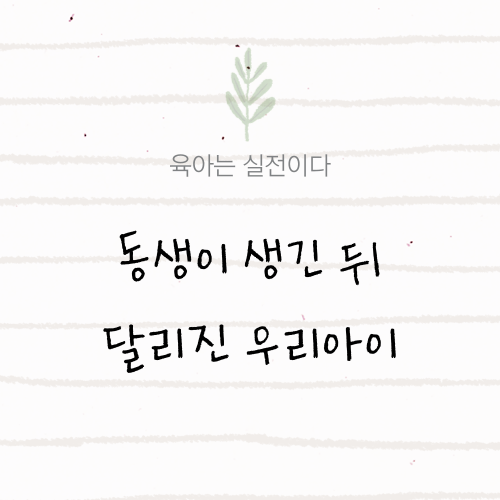 육아는 실전이다
동생이 생긴 뒤
달리진 우리아이